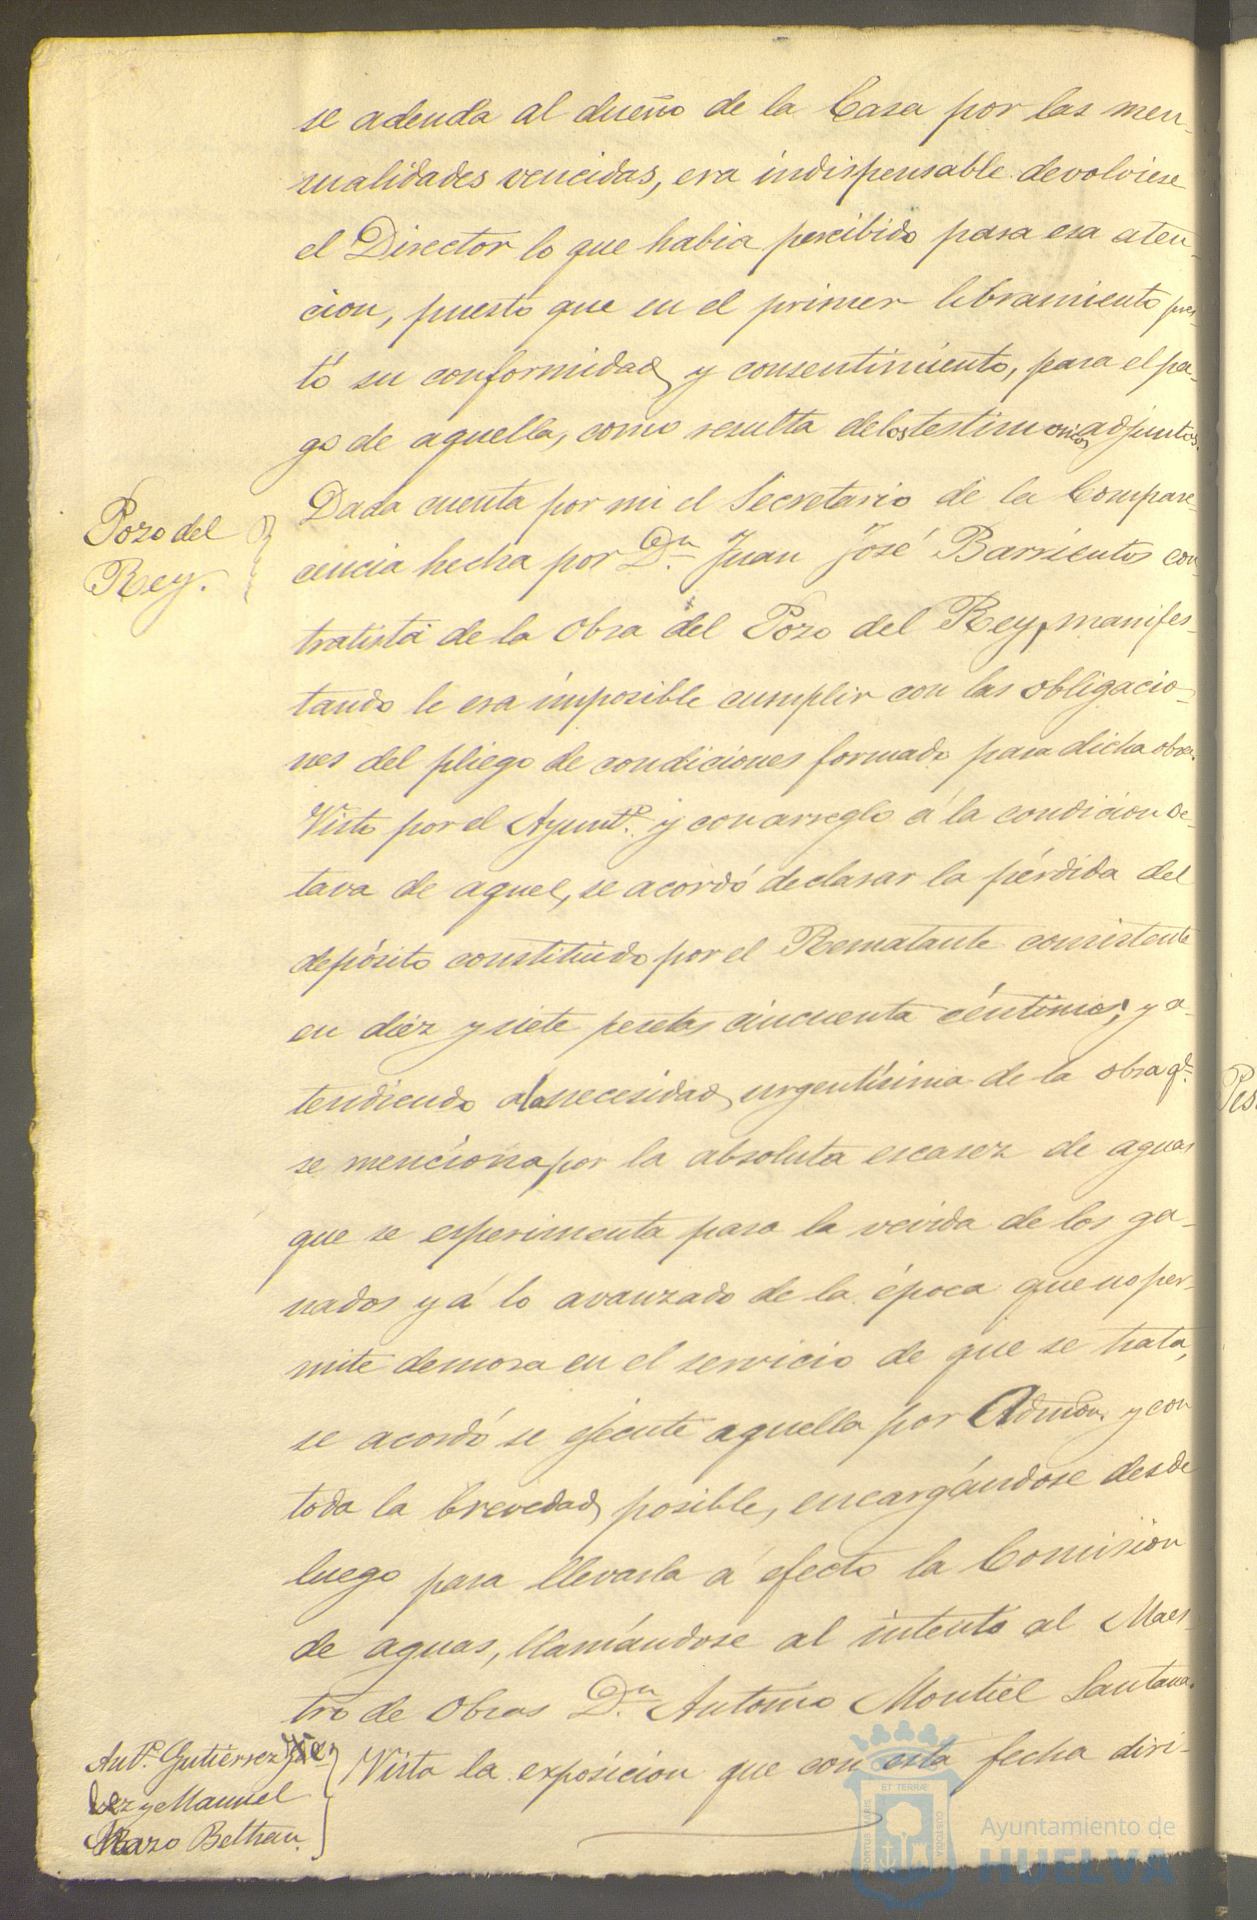 se adeuda al dueño de la Casa por las men-
sualidades vencidas, era indispensable devolviese
el Director lo que habia percibido para esa aten-
cion, puesto que en el primer libramiento pres-
tó su conformidad y consentimiento, para el pa-
go de aquella, como resulta de los testimonios adjuntos.
Pozo del
Rey.
Dada cuenta por mi el Secretario de la Compare-
cencia hecha por Dn. Juan José Barrientos con-
tratista de la Obra del Pozo del Rey, manifes-
tando le era imposible cumplir con las obligacio-
nes del pliego de condiciones formado para dicha obra.
Visto por el Ayuntº. y con arreglo á la condicion oc-
tava de aquel, se acordó declarar la pérdida del
depósito constituido por el Rematante consistente
en diez y siete pesetas cincuenta céntimos; y a-
tendiendo a la necesidad urgentísima de la obra qe.
se menciona por la absoluta escasez de aguas
que se esperimenta para la vevida de los ga-
nados y á lo avanzado de la época que no per-
mite demora en el servicio de que se trata,
se acordó se ejecute aquella por Admón. y con
toda la brevedad posible, encargándose desde
luego para llevarla á efecto la Comisión
de aguas, llamándose al intento al Maes-
tro de Obras Dn. Antonio Montiel Santana.
Antº. Gutierrez
y Manuel
Razo Beltran.
Vista la exposicion que con esta fecha diri-
Pes
ET TERRÆ
PORTUS MARIS
CUSTODIA
Ayuntamiento de
HUELVA